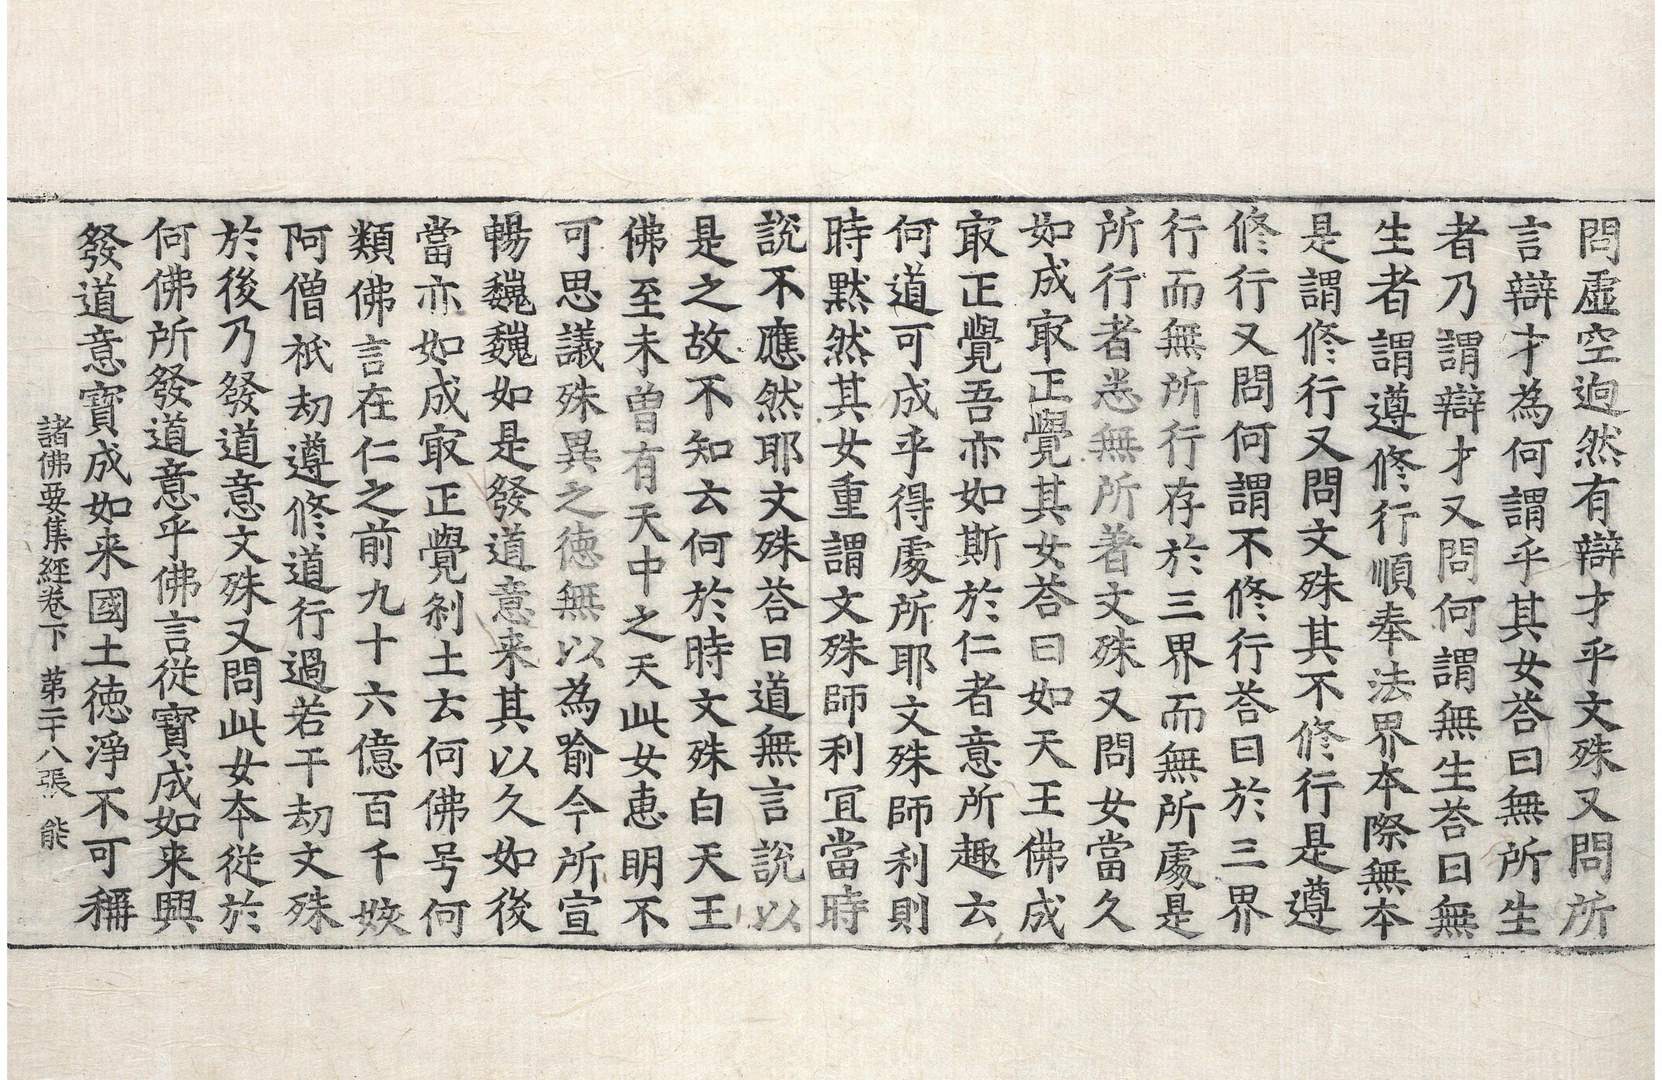 問虛空逈然有辯才乎文殊又問所
言辯才為何謂乎其女荅曰無所生
者乃謂辯才又問何謂無生荅曰無
生者謂遵修行順奉法界本際無本
是謂修行又問文殊其不修行是遵
修行又問何謂不修行荅曰於三界
行而無所行存於三界而無所處是
所行者悉無所著文殊又問女當久
如成㝡正覺其女荅曰如天王佛成
㝡正覺吾亦如斯於仁者意所趣云
何道可成乎得處所耶文殊師利則
時黙然其女重謂文殊師利冝當時
說不應然耶文殊荅曰道無言說以
是之故不知云何於時文殊白天王
佛至未曽有天中之天此女恵明不
可思議殊異之徳無以為喻今所宣
暢巍巍如是發道意来其以久如後
當亦如成㝡正覺剎土云何佛号何
類佛言在仁之前九十六億百千姟
阿僧祇劫遵修道行過若干劫文殊
於後乃發道意文殊又問此女本從於
何佛所發道意乎佛言從寶成如来興
發道意寶成如来國土徳淨不可稱
諸佛要集經卷下 第二十八張 能